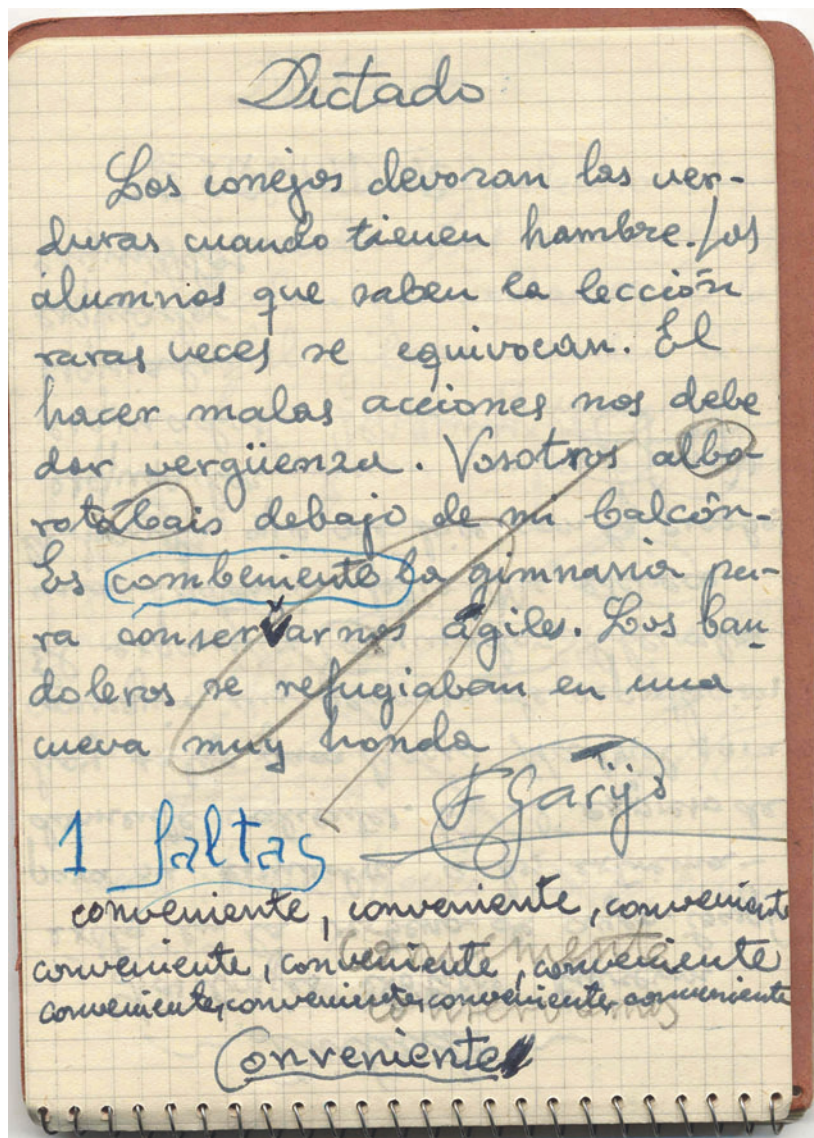 Dictado
Los conejos devoran las ver-
duras cuando tienen hambre. Los
alumnos que saben la lección
raras veces se equivocan. El
hacer malas acciones nos debe
dar vergüenza. Vosotros albo-
rotabais debajo de mi balcón.
Es combeniente la gimnasia pa-
ra conservarnos ágiles. Los ban-
doleros se refugiaban en una
cueva muy honda
F Garijo
1 faltas
conveniente, conveniente, conveniente
conveniente, conveniente, conveniente
conveniente, conveniente, conveniente, conveniente
Conveniente